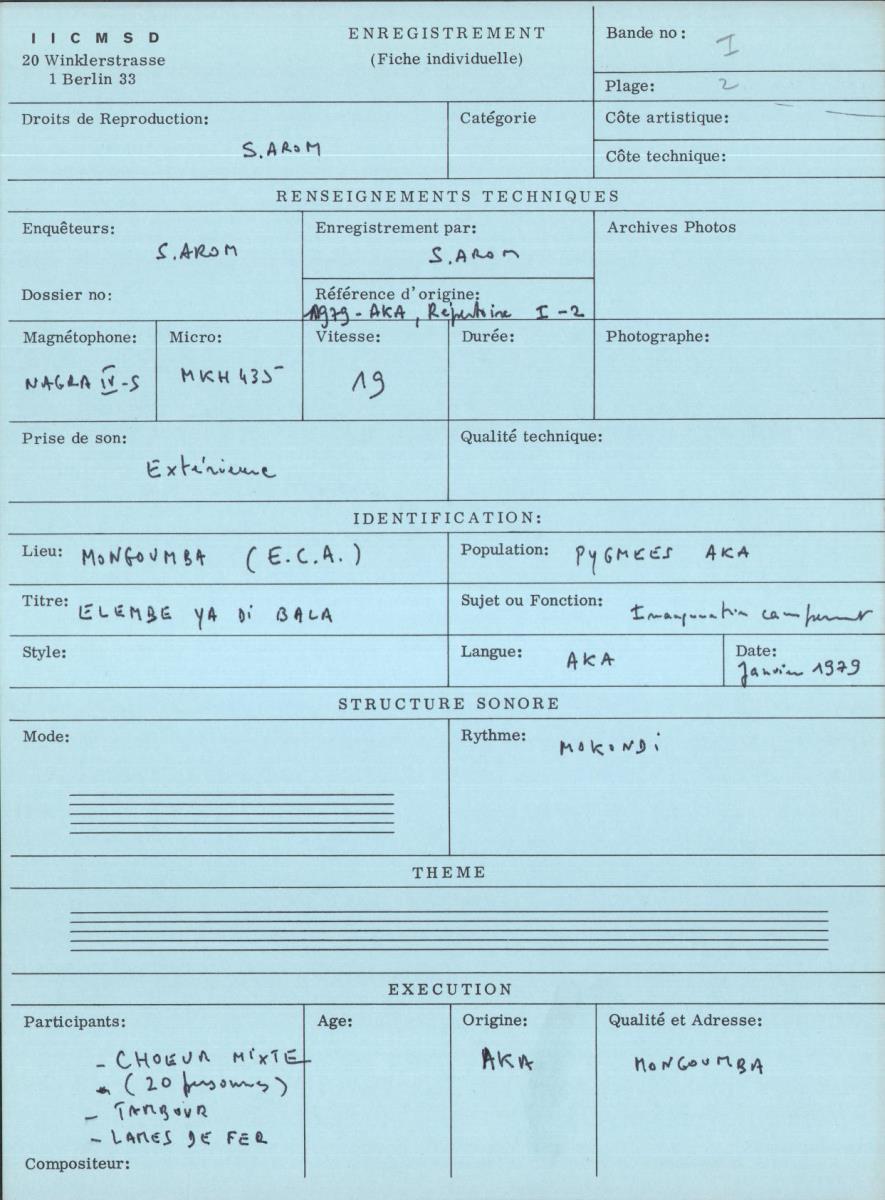 I I C M S D
20 Winklerstrasse
1 Berlin 33
ENREGISTREMENT
(Fiche individuelle)
Bande no: I
Plage: 2
Droits de Reproduction:
S. AROM
Catégorie
Côte artistique:
Côte technique:
RENSEIGNEMENTS TECHNIQUES
Enquêteurs:
S. AROM
Dossier no:
Enregistrement par:
S. AROM
Référence d'origine:
1979 - AKA, Répertoire I - 2
Archives Photos
Magnétophone:
NAGRA IV-S
Micro:
MKH 435
Vitesse:
19
Durée:
Photographe:
Prise de son:
Extérieure
Qualité technique:
IDENTIFICATION:
Lieu: MONGOUMBA (E.C.A.)
Population: PYGMEES AKA
Titre: ELEMBE YA DI BALA
Sujet ou Fonction: Inauguration campement
Style:
Langue: AKA
Date:
Janvier 1979
STRUCTURE SONORE
Mode:
Rythme: MOKONDI
THEME
EXECUTION
Participants:
- CHOEUR MIXTE
(20 personnes)
- TAMBOUR
- LAMES DE FER
Compositeur:
Age:
Origine:
AKA
Qualité et Adresse:
MONGOUMBA